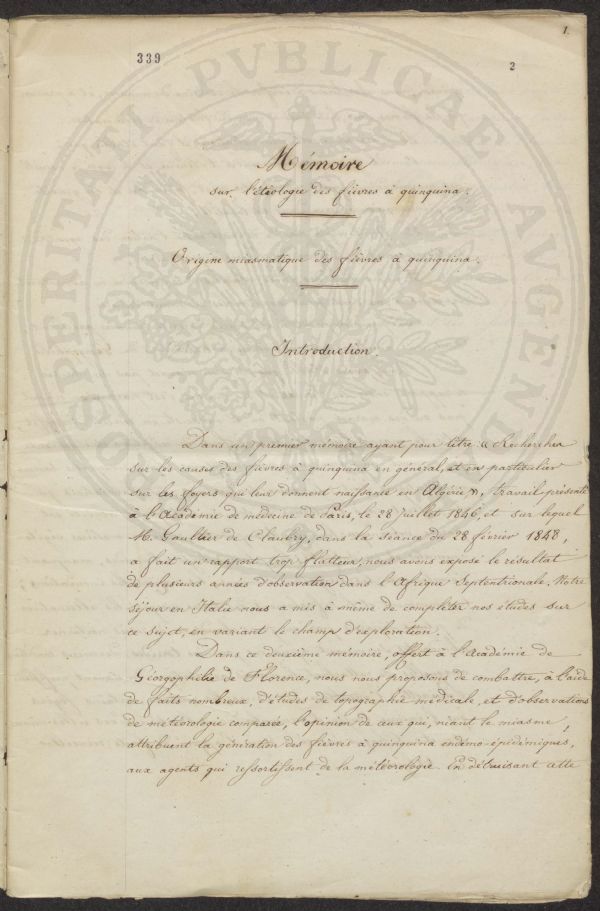 1.
339
2
PROSPERITATI PVBLICAE AVGENDAE
Mémoire
sur l'étiologie des fièvres à quinquina.
Origine miasmatique des fièvres à quinquina.
Introduction.
Dans un premier mémoire ayant pour titre « Recherches
sur les causes des fièvres à quinquina en général, et en particulier
sur les foyers qui leur donnent naissance en Algérie », travail présenté
à l'Académie de médecine de Paris, le 28 Juillet 1846, et sur lequel
M. Gaultier de Claubry, dans la séance du 28 février 1848,
a fait un rapport trop flatteur, nous avons exposé le résultat
de plusieurs années d'observation dans l'Afrique Septentrionale. Notre
séjour en Italie nous a mis à même de compléter nos études sur
ce sujet, en variant le champ d'exploration.
Dans ce deuxième mémoire, offert à l'Académie de
Géorgophilie de Florence, nous nous proposons de combattre, à l'aide
de faits nombreux, d'études de topographie médicale, et d'observations
de météorologie comparée, l'opinion de ceux qui, niant le miasme,
attribuent la génération des fièvres à quinquina endémo-épidémiques,
aux agents qui ressortissent de la météorologie. En détruisant cette